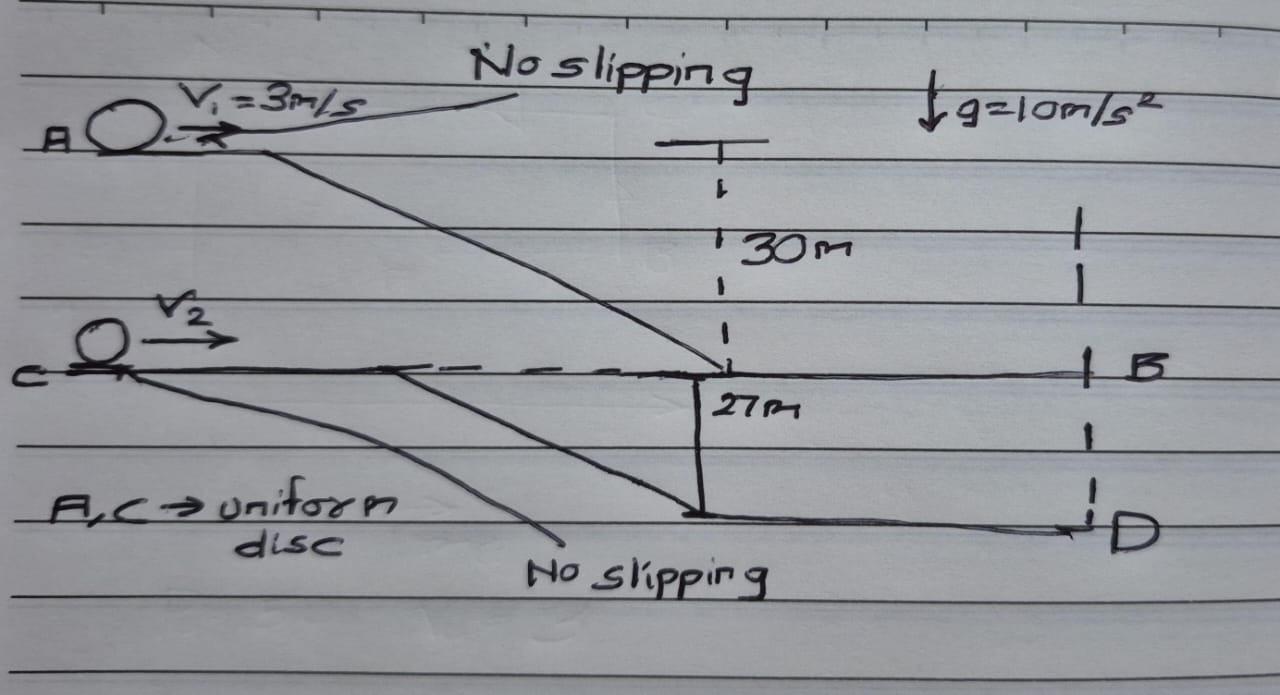 No slipping
V₁ = 3m/s
g=10m/s²
A
30m
V₂
C
B
27m
A, C → uniform
disc
D
No slipping